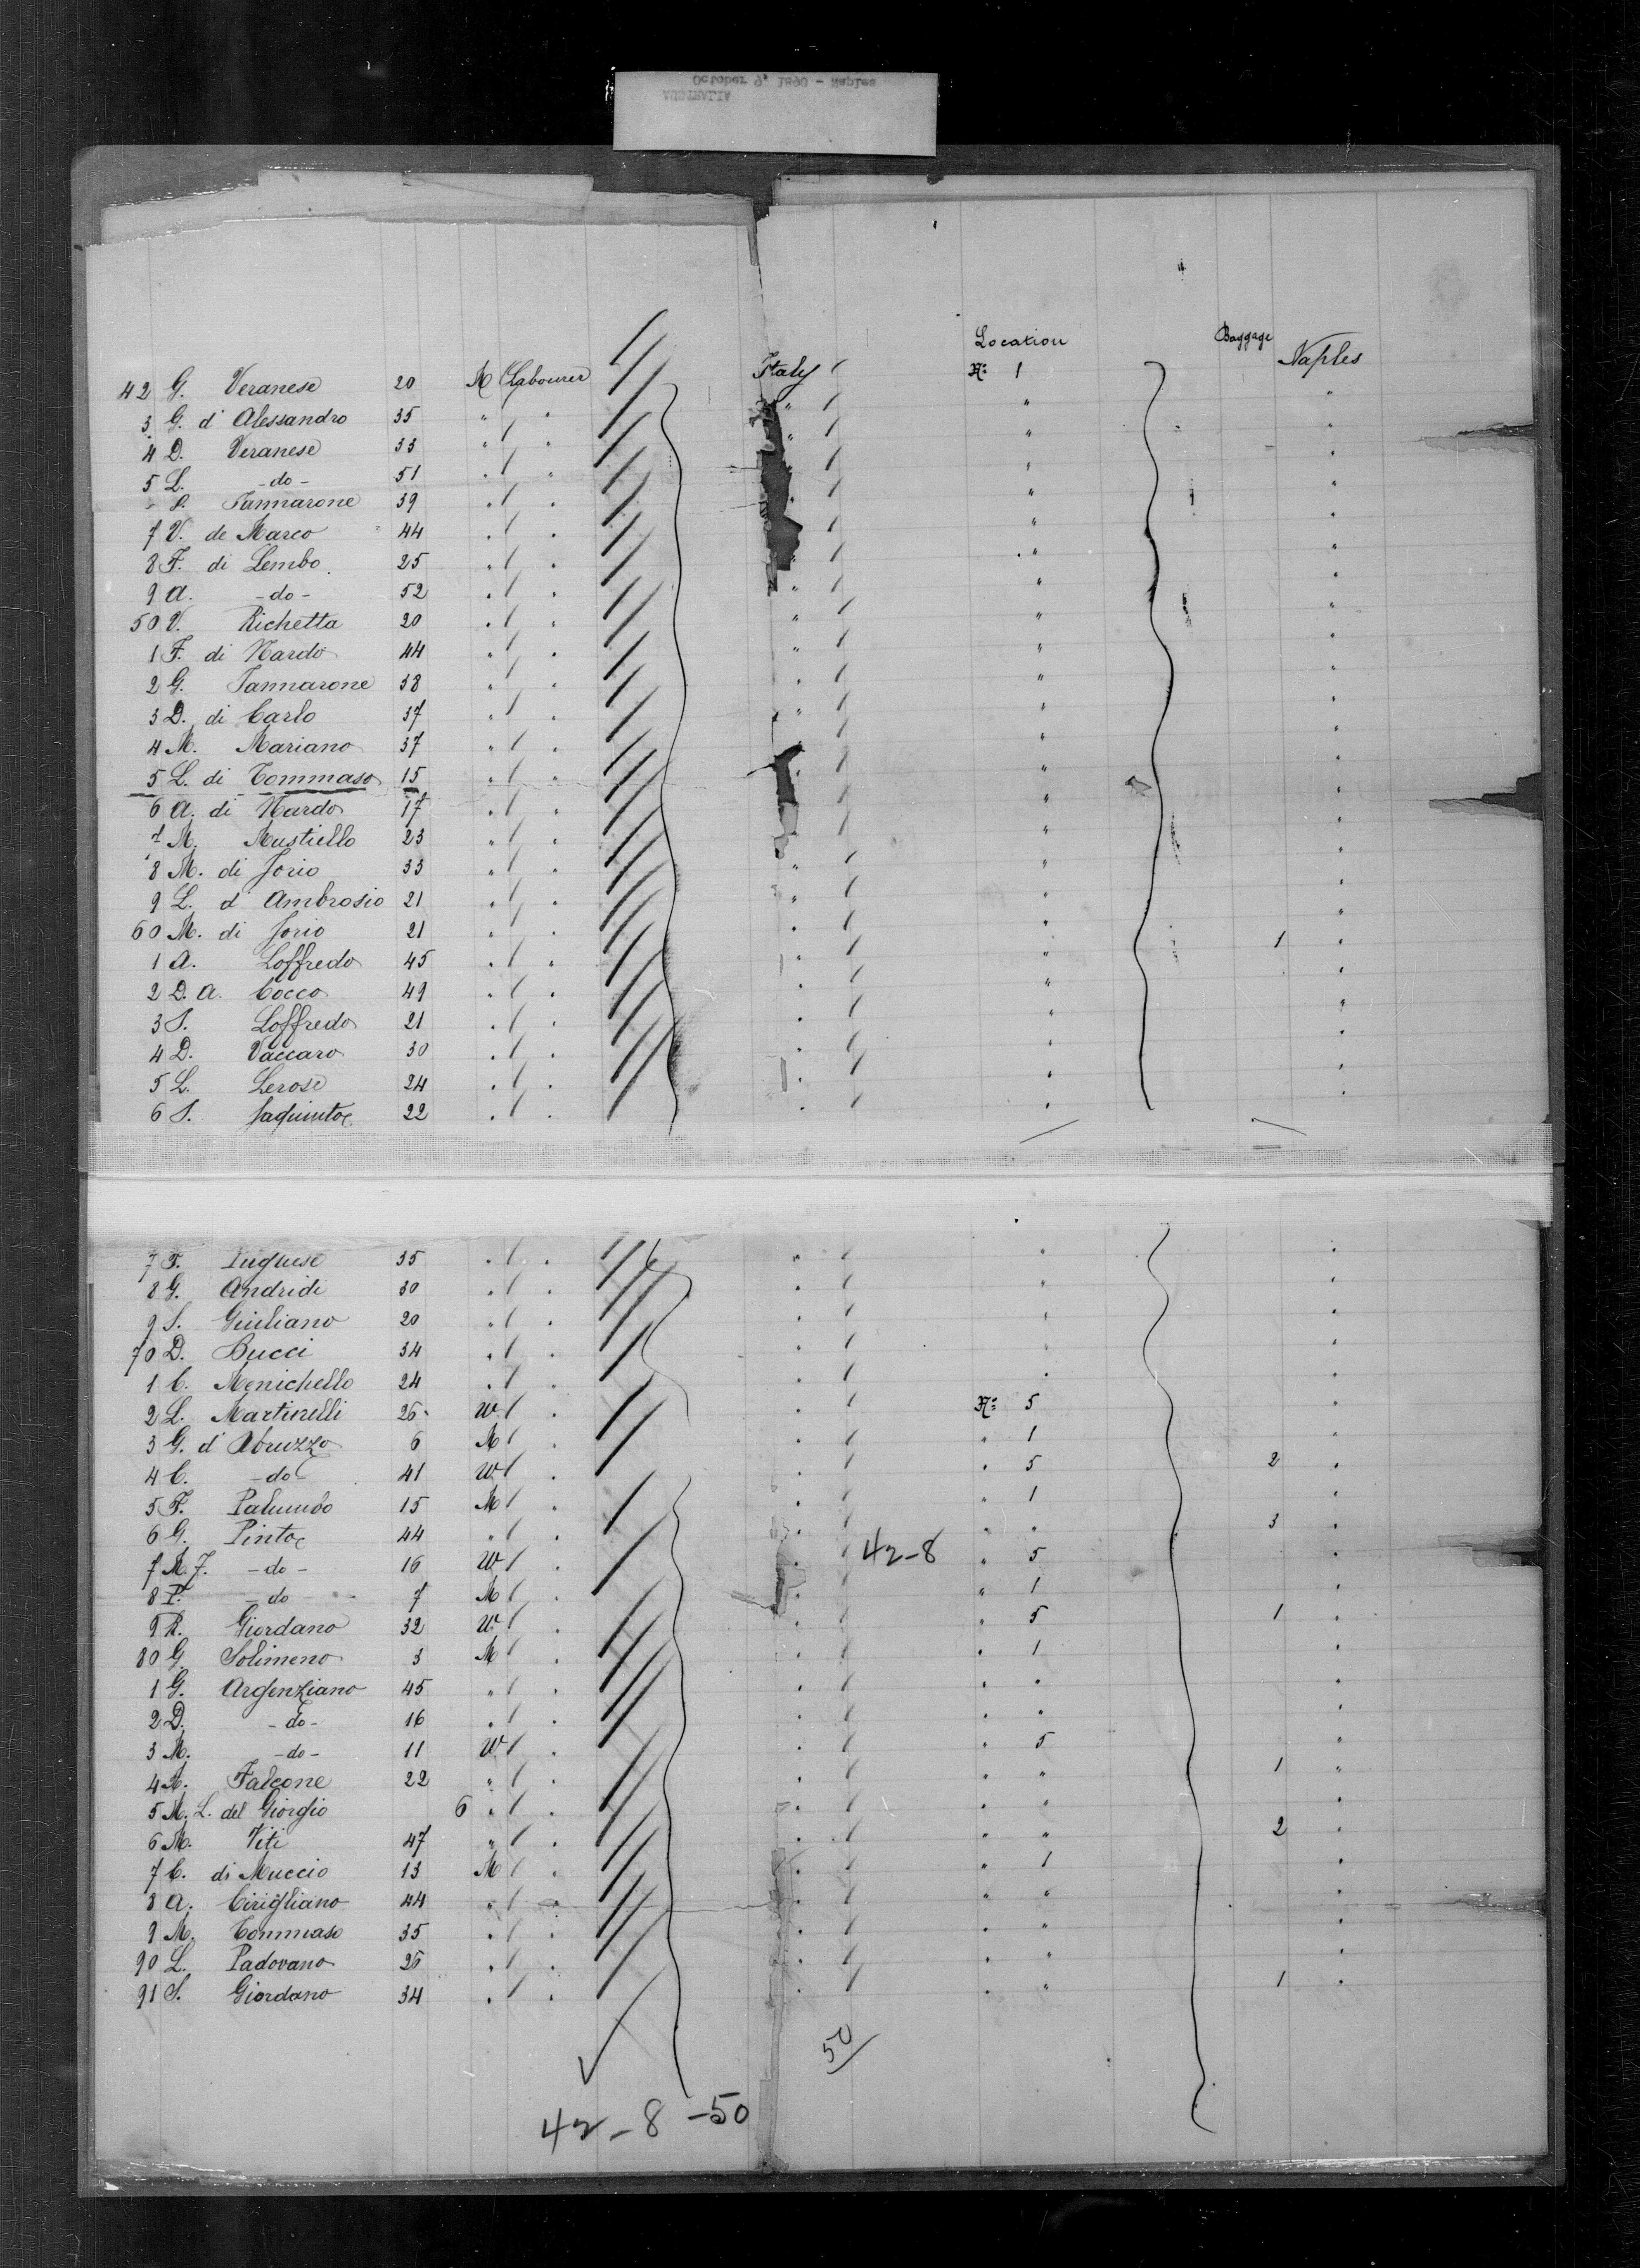 AUSTRALIA
October 9, 1890 - Naples
Location Baggage
42 G. Veranese 20 M Labourer Italy No 1 Naples
3 G. d' Alessandro 35 " " " " "
4 D. Veranese 33 " " " " "
5 L. -do- 51 " " " "
S. Iannarone 39 " " " " "
7 V. de Marco 44 " " " "
8 F. di Lembo 25 " " " " "
9 A. -do- 52 " " " " "
50 V. Richetta 20 " " " " "
1 F. di Nardo 44 " " " " "
2 G. Iannarone 38 " " " " "
3 D. di Carlo 37 " " " " "
4 M. Mariano 37 " " " "
5 L. di Tommaso 15 " " " " "
6 A. di Nardo 17 " " " "
7 M. Mastiello 23 " " " " "
8 M. di Jorio 33 " " " " "
9 L. d' Ambrosio 21 " " " " "
60 M. di Jorio 21 " " " " "
1 A. Loffredo 45 " " " " 1 "
2 D. A. Cocco 49 " " " " "
3 S. Loffredo 21 " " " " "
4 D. Vaccaro 30 " " " " "
5 L. Lerose 24 " " " " "
6 S. Jaquinto 22 " " " " "
7 F. 35 " " " " "
8 G. Andridi 30 " " " " "
9 S. Giuliano 20 " " " " "
70 D. Bucci 34 " " " " "
1 C. Menichello 24 " " " " "
2 L. Martinelli 26 W " " No 5 "
3 G. d' Abruzzo 6 M " " " 1 "
4 C. -do- 41 W " " " 5 2 "
5 F. Palumbo 15 M " " " 1 "
6 G. Pinto 44 " " " " " 3 "
7 M. J. -do- 16 W " " 42-8 " 5 "
8 P. -do- 7 M " " " 1 "
9 R. Giordano 32 W " " " 5 1 "
80 G. Solimeno 3 M " " " 1 "
1 G. Argenziano 45 " " " " " "
2 D. -do- 16 " " " " " "
3 M. -do- 11 W " " " 5 "
4 A. Falcone 22 " " " " " 1 "
5 M. L. del Giorgio 6 " " " " " "
6 M. Viti 47 " " " " " 2 "
7 C. di Muccio 13 M " " " 1 "
8 A. Cirigliano 44 " " " " " "
9 M. Tommaso 35 " " " " " "
90 L. Padovano 26 " " " " " "
91 S. Giordano 34 " " " " " 1 "
50
42-8-50